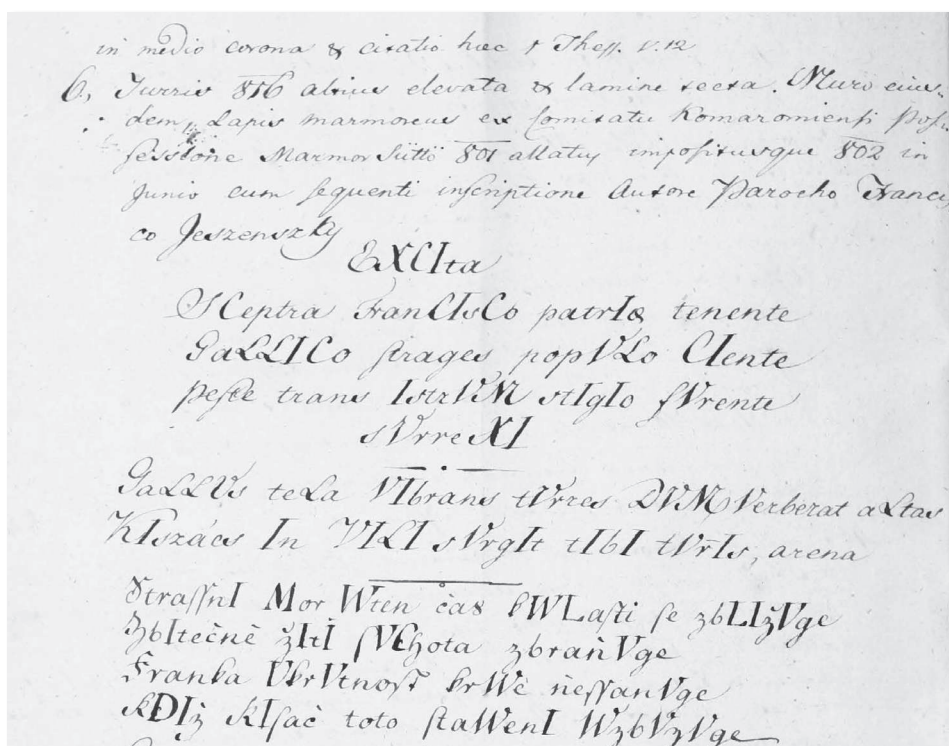 in medio corona & citatio haec 1 Thess. V. 12
6, Turris 816 altius elevata & lamine tecta. Muro eius-
dem, Lapis marmoreus ex Comitatu Komaromiensi Pos-
sessione Marmor Süttö 801 allatus impositusque 802 in
Junio cum sequenti inscriptione Autore Parocho Francis
co Jeszenszky
EXCIta
SCeptra FranCIsCo patrIæ tenente
GaLLICo strages popVLo CIente
peste trans IstrVM stIgIo fVrente
sVrreXI
GaLLVs teLa VIbrans tVrres DVM Verberat aLtas
KIszács In VILI sVrgIt tIbI tVrIs, arena
StrassnI Mor Wten čas kWLasti se zbLIžVge
ZbItečně žItI sVChota zbraňVge
Franka VkrVtnost krWě nessanVge
kDIž KIsač toto staWenI WzbVzVge